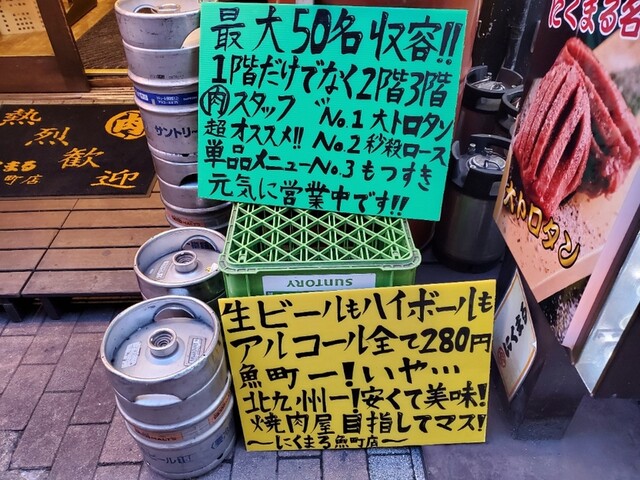 最大50名収容!!
1階だけでなく2階3階
肉スタッフ
超オススメ!!
単品メニュー
No.1 大トロタン
No.2 秒殺ロース
No.3 もつすき
元気に営業中です!!
SUNTORY
生ビールもハイボールも
アルコール全て280円
魚町一!いや…
北九州一!安くて美味!
焼肉屋目指してマス!
〜にくまる魚町店〜
熱烈歓迎
肉
町店
サントリー
にくまる名
大トロタン
にくまる